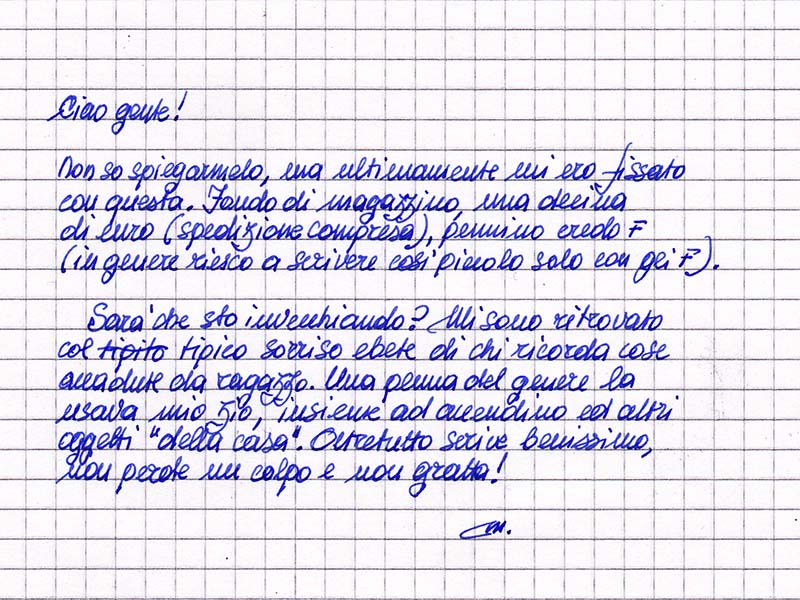 Ciao gente!
Non so spiegarmelo, ma ultimamente mi ero fissato
con questa. Fondo di magazzino, una decina
di euro (spedizione compresa), pennino credo F
(in genere riesco a scrivere così piccolo solo con gli F).
Sarà che sto invecchiando? Mi sono ritrovato
col tipito tipico sorriso ebete di chi ricorda cose
accadute da ragazzo. Una penna del genere la
usava mio zio, insieme ad accendino ed altri
oggetti "della casa". Oltretutto scrive benissimo,
non perde un colpo e non gratta!